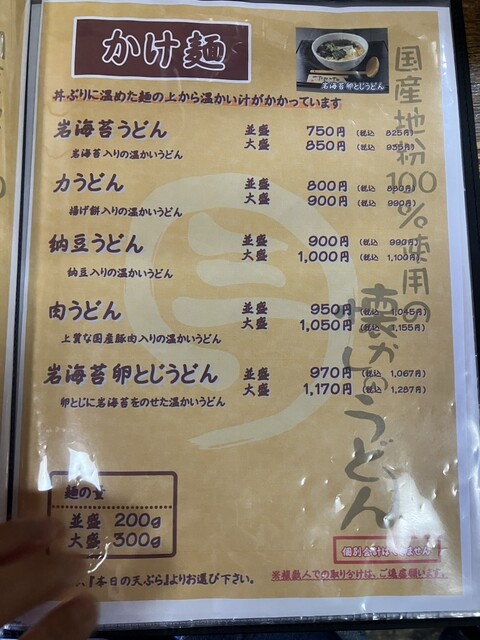 かけ麺
岩海苔 卵とじうどん
丼ぶりに温めた麺の上から温かい汁がかかっています
国産地粉100%使用の
懐かしのうどん
岩海苔うどん 並盛 750円 (税込 825円)
大盛 850円 (税込 935円)
岩海苔入りの温かいうどん
力うどん 並盛 800円 (税込 880円)
大盛 900円 (税込 990円)
揚げ餅入りの温かいうどん
納豆うどん 並盛 900円 (税込 990円)
大盛 1,000円 (税込 1,100円)
納豆入りの温かいうどん
肉うどん 並盛 950円 (税込 1,045円)
大盛 1,050円 (税込 1,155円)
上質な国産豚肉入りの温かいうどん
岩海苔 卵とじうどん 並盛 970円 (税込 1,067円)
大盛 1,170円 (税込 1,287円)
卵とじに岩海苔をのせた温かいうどん
麺の量
並盛 200g
大盛 300g
個別会計は ません
『本日の天ぷら』よりお選び下さい。
※複数人での取り分けは、ご遠慮願います。